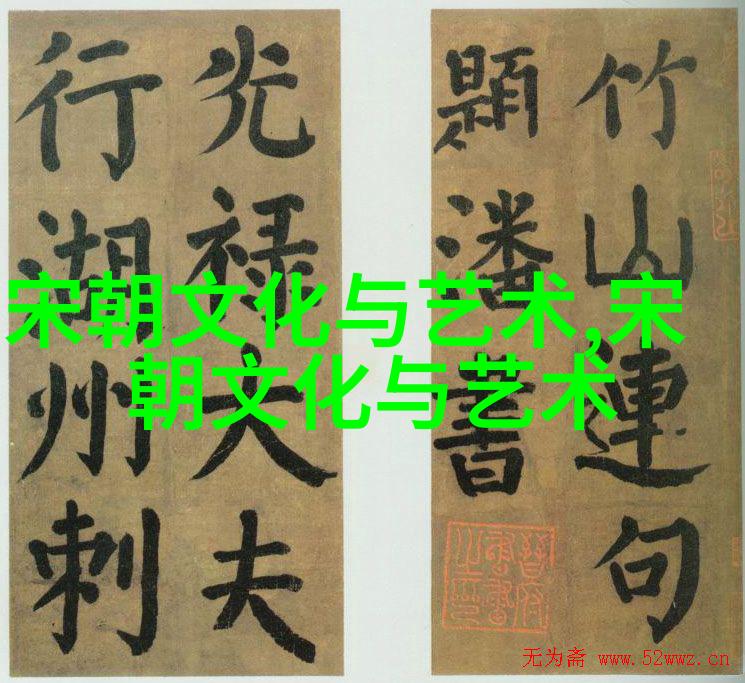 竹山連句
題潘書
光禄大夫
行湖州刺
宋朝文化与艺术,宋
朝文化与艺术
无为斋 www.52wwz.cn